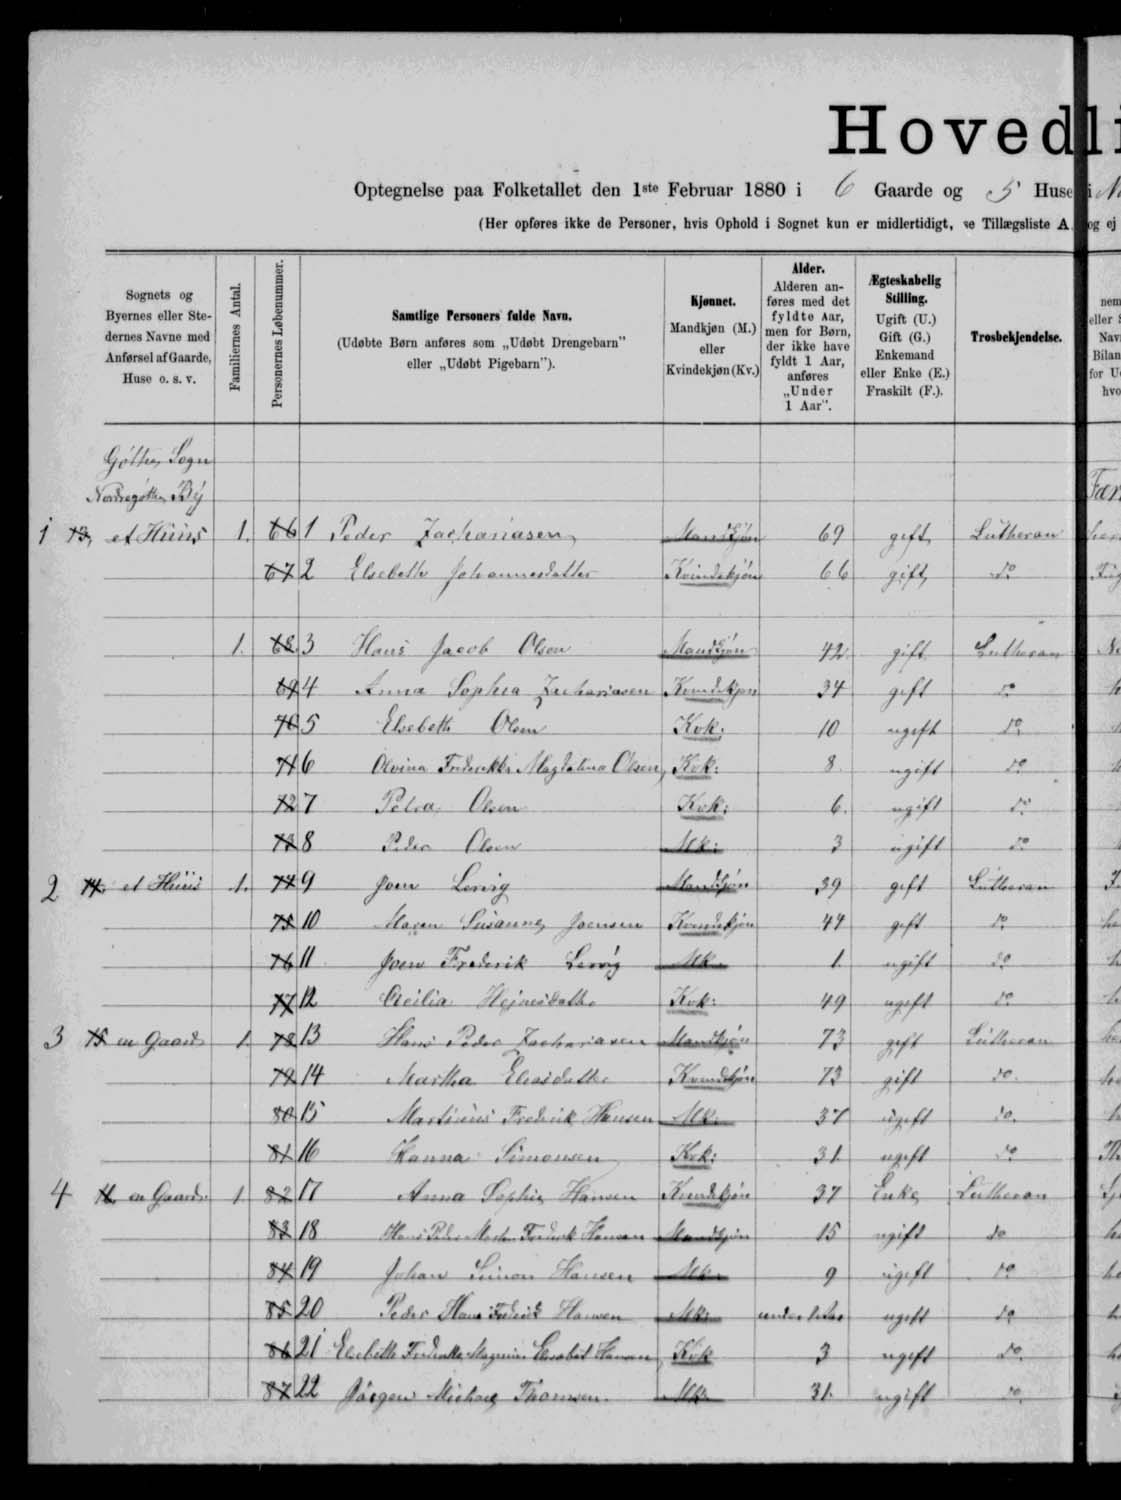 Hovedli
Optegnelse paa Folketallet den 1ste Februar 1880 i 6 Gaarde og 5 Huse i
(Her opføres ikke de Personer, hvis Ophold i Sognet kun er midlertidigt, se Tillægsliste A. og ej
Sognets og Byernes eller Stedernes Navne med Anførsel af Gaarde, Huse o. s. v.
Familiernes Antal.
Personernes Løbenummer.
Samtlige Personers fulde Navn.
(Udøbte Børn anføres som „Udøbt Drengebarn"
eller „Udøbt Pigebarn").
Kjønnet.
Mandkjøn (M.)
eller
Kvindekjøn (Kv.)
Alder.
Alderen an-
føres med det
fyldte Aar,
men for Børn,
der ikke have
fyldt 1 Aar,
anføres
„Under
1 Aar".
Ægteskabelig
Stilling.
Ugift (U.)
Gift (G.)
Enkemand
eller Enke (E.)
Fraskilt (F.).
Trosbekjendelse.
Gøthe Sogn
Nordregøthe By
1 13 et Huus 1. 66 1 Peder Zachariasen Mandkjøn 69 gift Lutheran
67 2 Elsebeth Johannesdatter Kvindekjøn 66 gift do
1. 68 3 Hans Jacob Olsen Mandkjøn 42 gift Lutheran
69 4 Anna Sophia Zachariasen Kvindekjøn 34 gift do
70 5 Elsebeth Olsen Kvk: 10 ugift do
71 6 Olvina Frederikke Magdalena Olsen Kvk: 8 ugift do
72 7 Petra Olsen Kvk: 6 ugift do
73 8 Peder Olsen Mk: 3 ugift do
2 14 et Huus 1. 74 9 Joen Lervig Mandkjøn 39 gift Lutheran
75 10 Maren Susanne Joensen Kvindekjøn 44 gift do
76 11 Joen Frederik Lervig Mk 1 ugift do
77 12 Cicilia Hejnesdatter Kvk: 49 ugift do
3 15 en Gaard 1. 78 13 Hans Peder Zachariasen Mandkjøn 73 gift Lutheran
79 14 Martha Eliasdatter Kvindekjøn 73 gift do.
80 15 Martinus Fredrik Hansen Mk: 37 ugift do.
81 16 Hanna Simonsen Kvk: 31 ugift do
4 16 en Gaard 1 82 17 Anna Sophie Hansen Kvindekjøn 37 Enke Lutheran
83 18 Hans Peder Frederik Hansen Mandkjøn 15 ugift do
84 19 Johan Simon Hansen Mk 9 ugift do
85 20 Peder Hans Frederik Hansen Mk: under 1 Aar ugift do
86 21 Elsebeth Frederikke Elisabet Hansen Kvk 3 ugift do.
87 22 Jørgen Michael Thomsen Mk 31. ugift do.